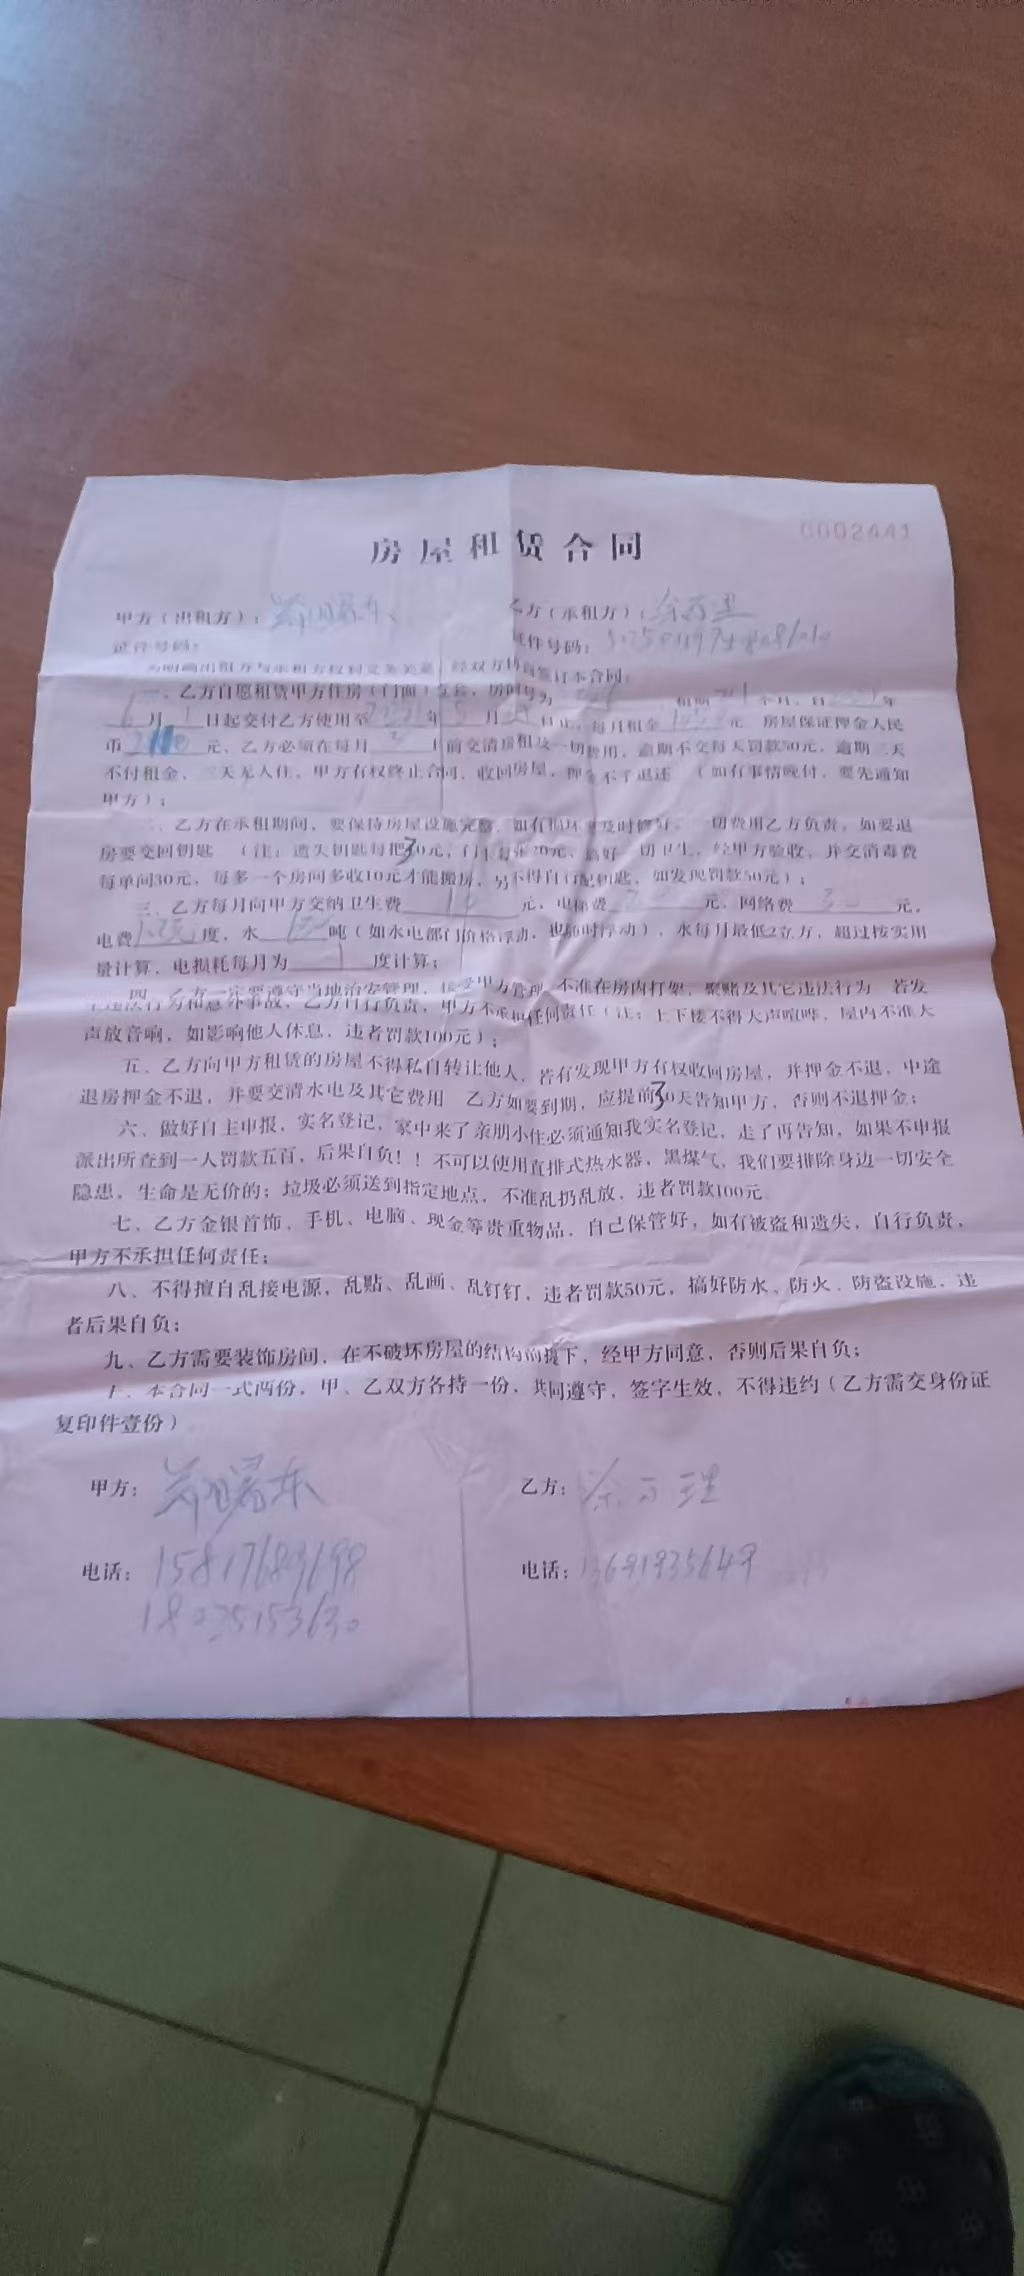 房屋租赁合同
0002441
甲方（出租方）： 乙方（承租方）：
证件号码： 证件号码：
为明确出租方与承租方权利义务关系，经双方协商签订本合同：
一、乙方自愿租赁甲方住房（门面） 套，房间号为 租期 个月，自 年
6月1日起交付乙方使用至 年5月 日止，每月租金 元 房屋保证押金人民
币 元，乙方必须在每月 日前交清房租及一切费用，逾期不交每天罚款50元，逾期三天
不付租金，三天无人住，甲方有权终止合同，收回房屋，押金不予退还 （如有事情晚付，要先通知
甲方）；
二、乙方在承租期间，要保持房屋设施完整，如有损坏要及时修好，一切费用乙方负责，如要退
房要交回钥匙 （注：遗失钥匙每把30元，门卡每张20元、搞好一切卫生，经甲方验收，并交消毒费
每单间30元，每多一个房间多收10元才能搬房，另不得自行配钥匙，如发现罚款50元）；
三、乙方每月向甲方交纳卫生费 元，电梯费 元，网络费 元，
电费 度，水 吨（如水电部门价格浮动，也随时浮动），水每月最低2立方，超过按实用
量计算，电损耗每月为 度计算；
四、乙方一定要遵守当地治安管理，接受甲方管理，不准在房内打架，聚赌及其它违法行为 若发
生违法行为和意外事故，乙方自行负责，甲方不承担任何责任（注：上下楼不得大声喧哗，屋内不准大
声放音响，如影响他人休息，违者罚款100元）；
五、乙方向甲方租赁的房屋不得私自转让他人，若有发现甲方有权收回房屋，并押金不退，中途
退房押金不退，并要交清水电及其它费用 乙方如要到期，应提前30天告知甲方，否则不退押金；
六、做好自主申报，实名登记，家中来了亲朋小住必须通知我实名登记，走了再告知，如果不申报
派出所查到一人罚款五百，后果自负！！不可以使用直排式热水器，黑煤气，我们要排除身边一切安全
隐患，生命是无价的；垃圾必须送到指定地点，不准乱扔乱放，违者罚款100元
七、乙方金银首饰、手机、电脑、现金等贵重物品，自己保管好，如有被盗和遗失，自行负责，
甲方不承担任何责任；
八、不得擅自乱接电源，乱贴、乱画、乱钉钉，违者罚款50元，搞好防水、防火、防盗设施，违
者后果自负；
九、乙方需要装饰房间，在不破坏房屋的结构前提下，经甲方同意，否则后果自负；
十、本合同一式两份，甲、乙双方各持一份，共同遵守，签字生效，不得违约（乙方需交身份证
复印件壹份）
甲方： 乙方：
电话：15817689698 电话：13691935649
18025153630